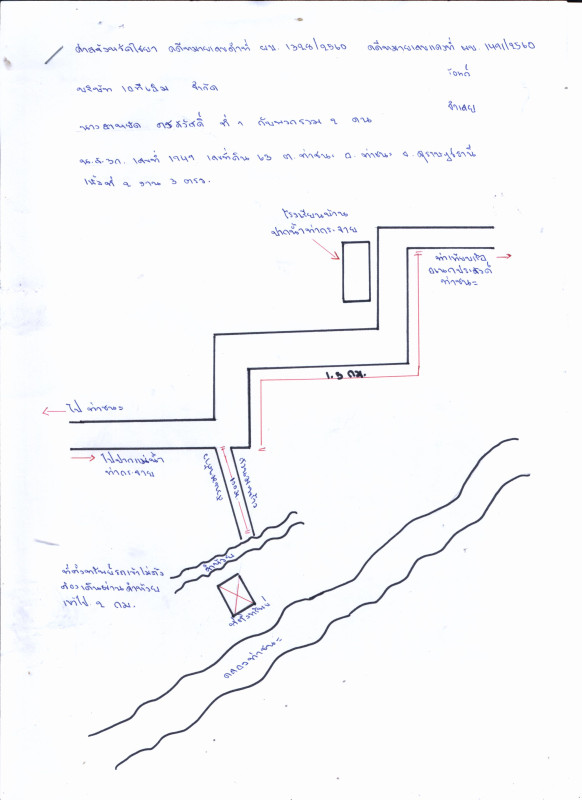 ศาลจังหวัดไชยา คดีหมายเลขดำที่ ผบ. 1328/2560 คดีหมายเลขแดงที่ ผบ. 1491/2560
โจทก์
บริษัท จำกัด
จำเลย
นาง ที่ 1 กับพวกรวม 2 คน
น.ส.3ก. เลขที่ 1747 เลขที่ดิน 63 ต. ท่าชนะ อ. ท่าชนะ จ. สุราษฎร์ธานี
เนื้อที่ 2 งาน 3 ตรว.
โรงเรียนบ้าน
ปากน้ำท่ากระจาย
ท่าเทียบเรือ
อเนกประสงค์
ท่าชนะ
1.3 กม.
ไป ท่าชนะ
ไปปากแม่น้ำ
ท่ากระจาย
ลำห้วย
ที่ตั้งทรัพย์รถเข้าไม่ได้
ต้องเดินผ่านลำห้วย
เข้าไป 2 กม.
ที่ตั้งทรัพย์
คลองท่าชนะ